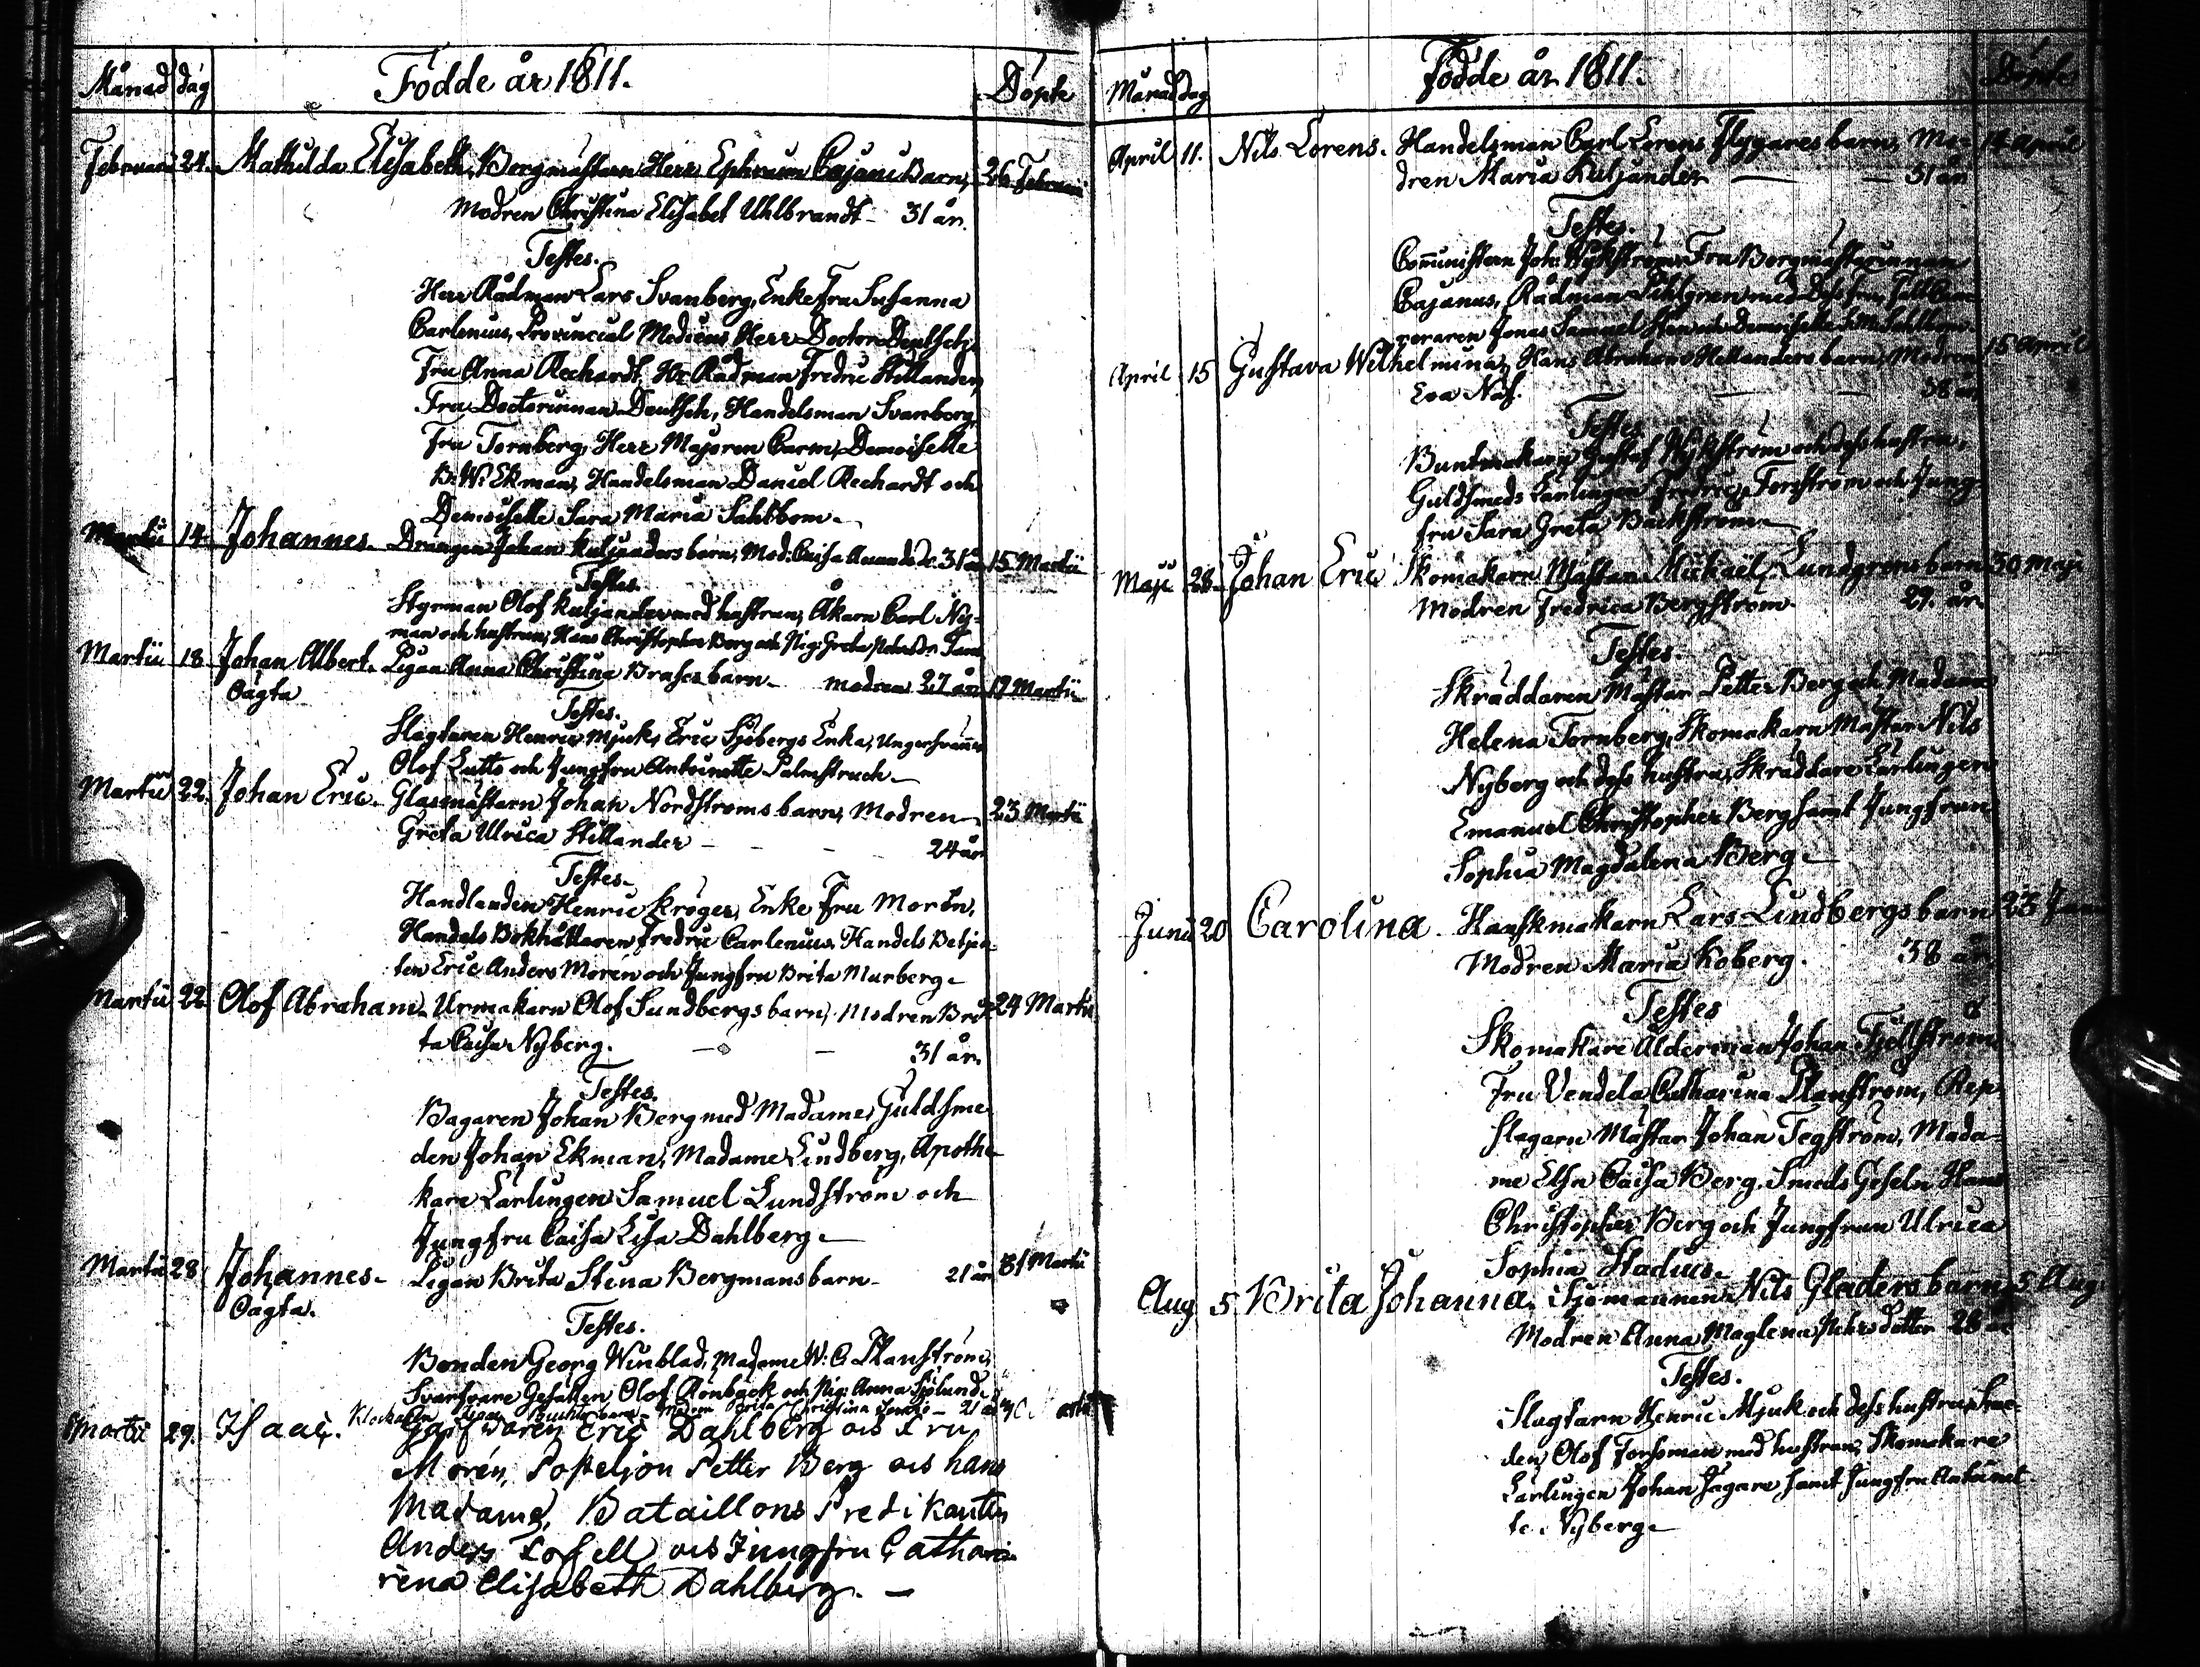 Månad dag Födde år 1811. Döpte
Februari 24. Mathilda Elisabeth, Bergmästaren Herr Ephraim Cajani Barn, 26 Februari
Modren Christina Elisabet Uhlbrandt 31 år.
Testes.
Herr Rådman Lars Svanberg, Enke Fru Susanna
Carlenius, Provincial Medicus Herr Doctor Deutsch,
Fru Anna Rechardt, Hr Rådman Fredric Stillander,
Fru Doctorinnan Deutsch, Handelsman Svanberg,
Fru Tornberg, Herr Majoren Carm, Demoiselle
B. W. Ekman, Handelsman Daniel Rechardt och
Demoiselle Sara Maria Sahlbom.
Martii 14. Johannes. Drängen Johan Kuljanders barn, Mod. Caisa 31 år 15 Martii
Testes.
Styrman Olof Kuljander med hustrun, Åkarn Carl Ny-
man och hustrun, Hans Christopher Berg och Pig: Greta
Martii 18. Johan Albert. Pigan Anna Christina Brases barn. modren 27 år 19 Martii
Oägta
Testes.
Slagtaren Henric Mjuk, Eric Sjöbergs Enka, Ungersvennen
Olof Lutto och Jungfru Antoinette Palmstruch
Martii 22. Johan Eric. Glasmästarn Johan Nordströms barn, Modren 23 Martii
Greta Ulrica Stillander 24 år
Testes.
Handlanden Henric Kröger, Enke Fru Morén,
Handels Bokhållaren Fredric Carlenius, Handels Betjen-
ten Eric Anders Morén och Jungfru Brita Murberg.
Martii 22. Olof Abraham. Urmakarn Olof Sundbergs barn, Modren Bri- 24 Martii
ta Caisa Nyberg. 31 år.
Testes.
Bagaren Johan Berg med Madame, Guldsme
den Johan Ekman, Madame Lindberg, Apothe
kare Lärlingen Samuel Lundström och
Jungfru Caisa Lisa Dahlberg.
Martii 28 Johannes. Pigan Brita Stina Bergmans barn. 21 år 31 Martii
Oägta.
Testes.
Bonden Georg Winblad, Madame W: C. Planström,
Svarfvare Gesällen Olof Rönback och Pig: Anna Sjölund.
Klockaren barn Modren Brita Christina 21 år
Martii 29. Isaac. Garfvaren Eric Dahlberg och Fru
Morén, Posteljon Petter Berg och hans
Madame, Bataillons Predikanten
Anders och Jungfru Catha-
rina Elisabeth Dahlberg.
Månad dag Födde år 1811. Döpte
April 11. Nils Lorens. Handelsman Carl Lorens Flygares barn, Mo- 14 April
dren Maria Kuljander 31 år
Testes.
Comministern Joh: Wykström, Fru Bergmästarinnan
Cajanus, Rådman Pihlgren med Dess fru,
Jonas Samuel och Demoiselle S. M. Sahlbom.
April 15 Gustava Wilhelmina, Hans Abraham Hellanders barn, Modren 15 April
Eva Näs. 38 år
Testes
Buntmakare Gustaf Wykström och dess hustru,
Guldsmeds Lärlingen Fredric Forsström och Jung
fru Sara Greta Backström
Maji 28. Johan Eric Skomakern Mästar Mickaël Lundgrens barn 30 Maji
Modren Fredrica Bergström. 29. år.
Testes.
Skräddaren Mästar Petter Berg och Madame
Helena Tornberg, Skomakarn Mästar Nils
Nyberg och dess hustru, Skräddare Lärlingen
Emanuel Christopher Berg samt Jungfrun
Sophia Magdalena Berg.
Junii 20 Carolina. Handskmakarn Lars Lindbergs barn 23 Junii
Modren Maria Koberg. 38 år
Testes
Skomakare Ålderman Johan Fjellström,
Fru Vendela Catharina Planström, Rep-
slagarn Mästar Johan Tegström, Mada-
me Elsa Caisa Berg, Smeds Geseln Hans
Christopher Berg och Jungfrun Ulrica
Sophia Stadius.
Aug 5 Brita Johanna. Sjömannen Nils Gladers barn, 5 Aug.
Modren Anna Maglena Pehrsdotter 28 år
Testes.
Slagtarn Henric Mjuk och dess hustru, Sme-
den Olof Forssman med hustrun, Skomakare
Lärlingen Johan Jagare samt Jungfru Antoinet
te Nyberg